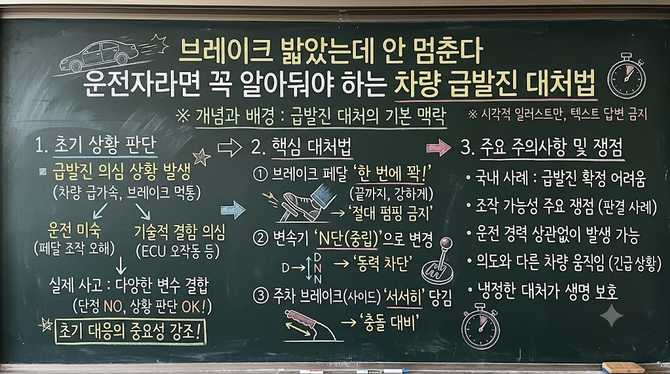 브레이크 밟았는데 안 멈춘다
운전자라면 꼭 알아둬야 하는 차량 급발진 대처법
※ 개념과 배경 : 급발진 대처의 기본 맥락
※ 시각적 일러스트만, 텍스트 답변 금지
1. 초기 상황 판단
급발진 의심 상황 발생
(차량 급가속, 브레이크 먹통)
운전 미숙
(페달 조작 오해)
기술적 결함 의심
(ECU 오작동 등)
실제 사고 : 다양한 변수 결합
(단정 NO, 상황 판단 OK!)
초기 대응의 중요성 강조!
2. 핵심 대처법
① 브레이크 페달 '한 번에 꽉!'
(끝까지, 강하게)
→ '절대 펌핑 금지'
② 변속기 'N단(중립)'으로 변경
D→
D
N
N
→ '동력 차단'
③ 주차 브레이크(사이드) '서서히' 당김
→ '충돌 대비'
3. 주요 주의사항 및 쟁점
• 국내 사례 : 급발진 확정 어려움
• 조작 가능성 주요 쟁점 (판결 사례)
• 운전 경력 상관없이 발생 가능
• 의도와 다른 차량 움직임 (긴급 상황)
• 냉정한 대처가 생명 보호